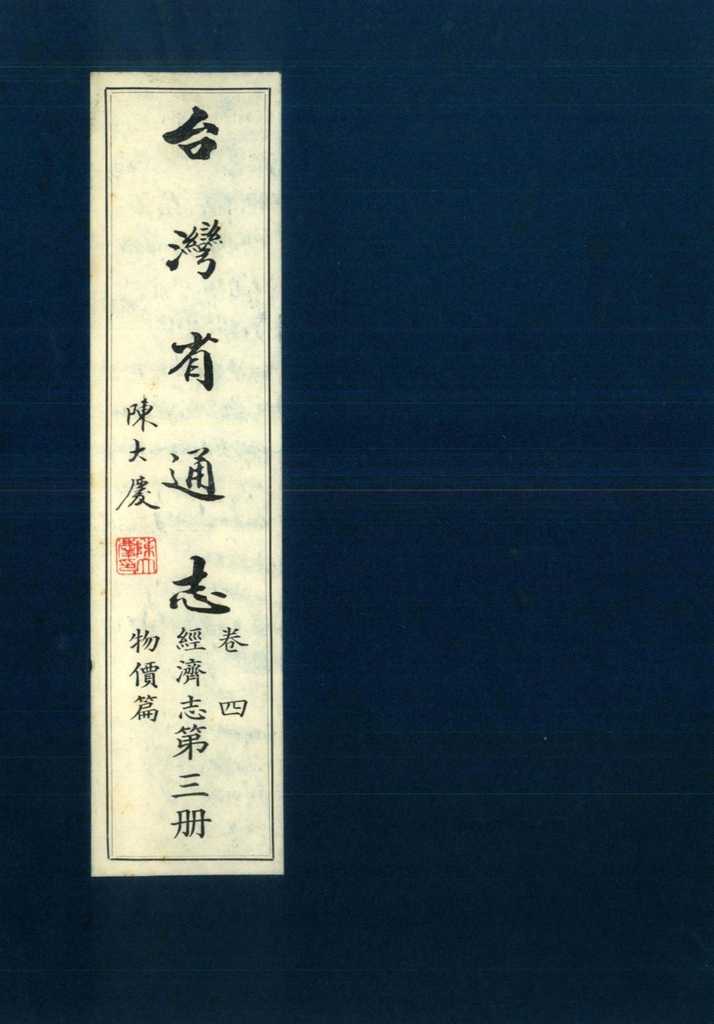 台灣省通志
卷四
經濟志第三册
物價篇
陳大慶